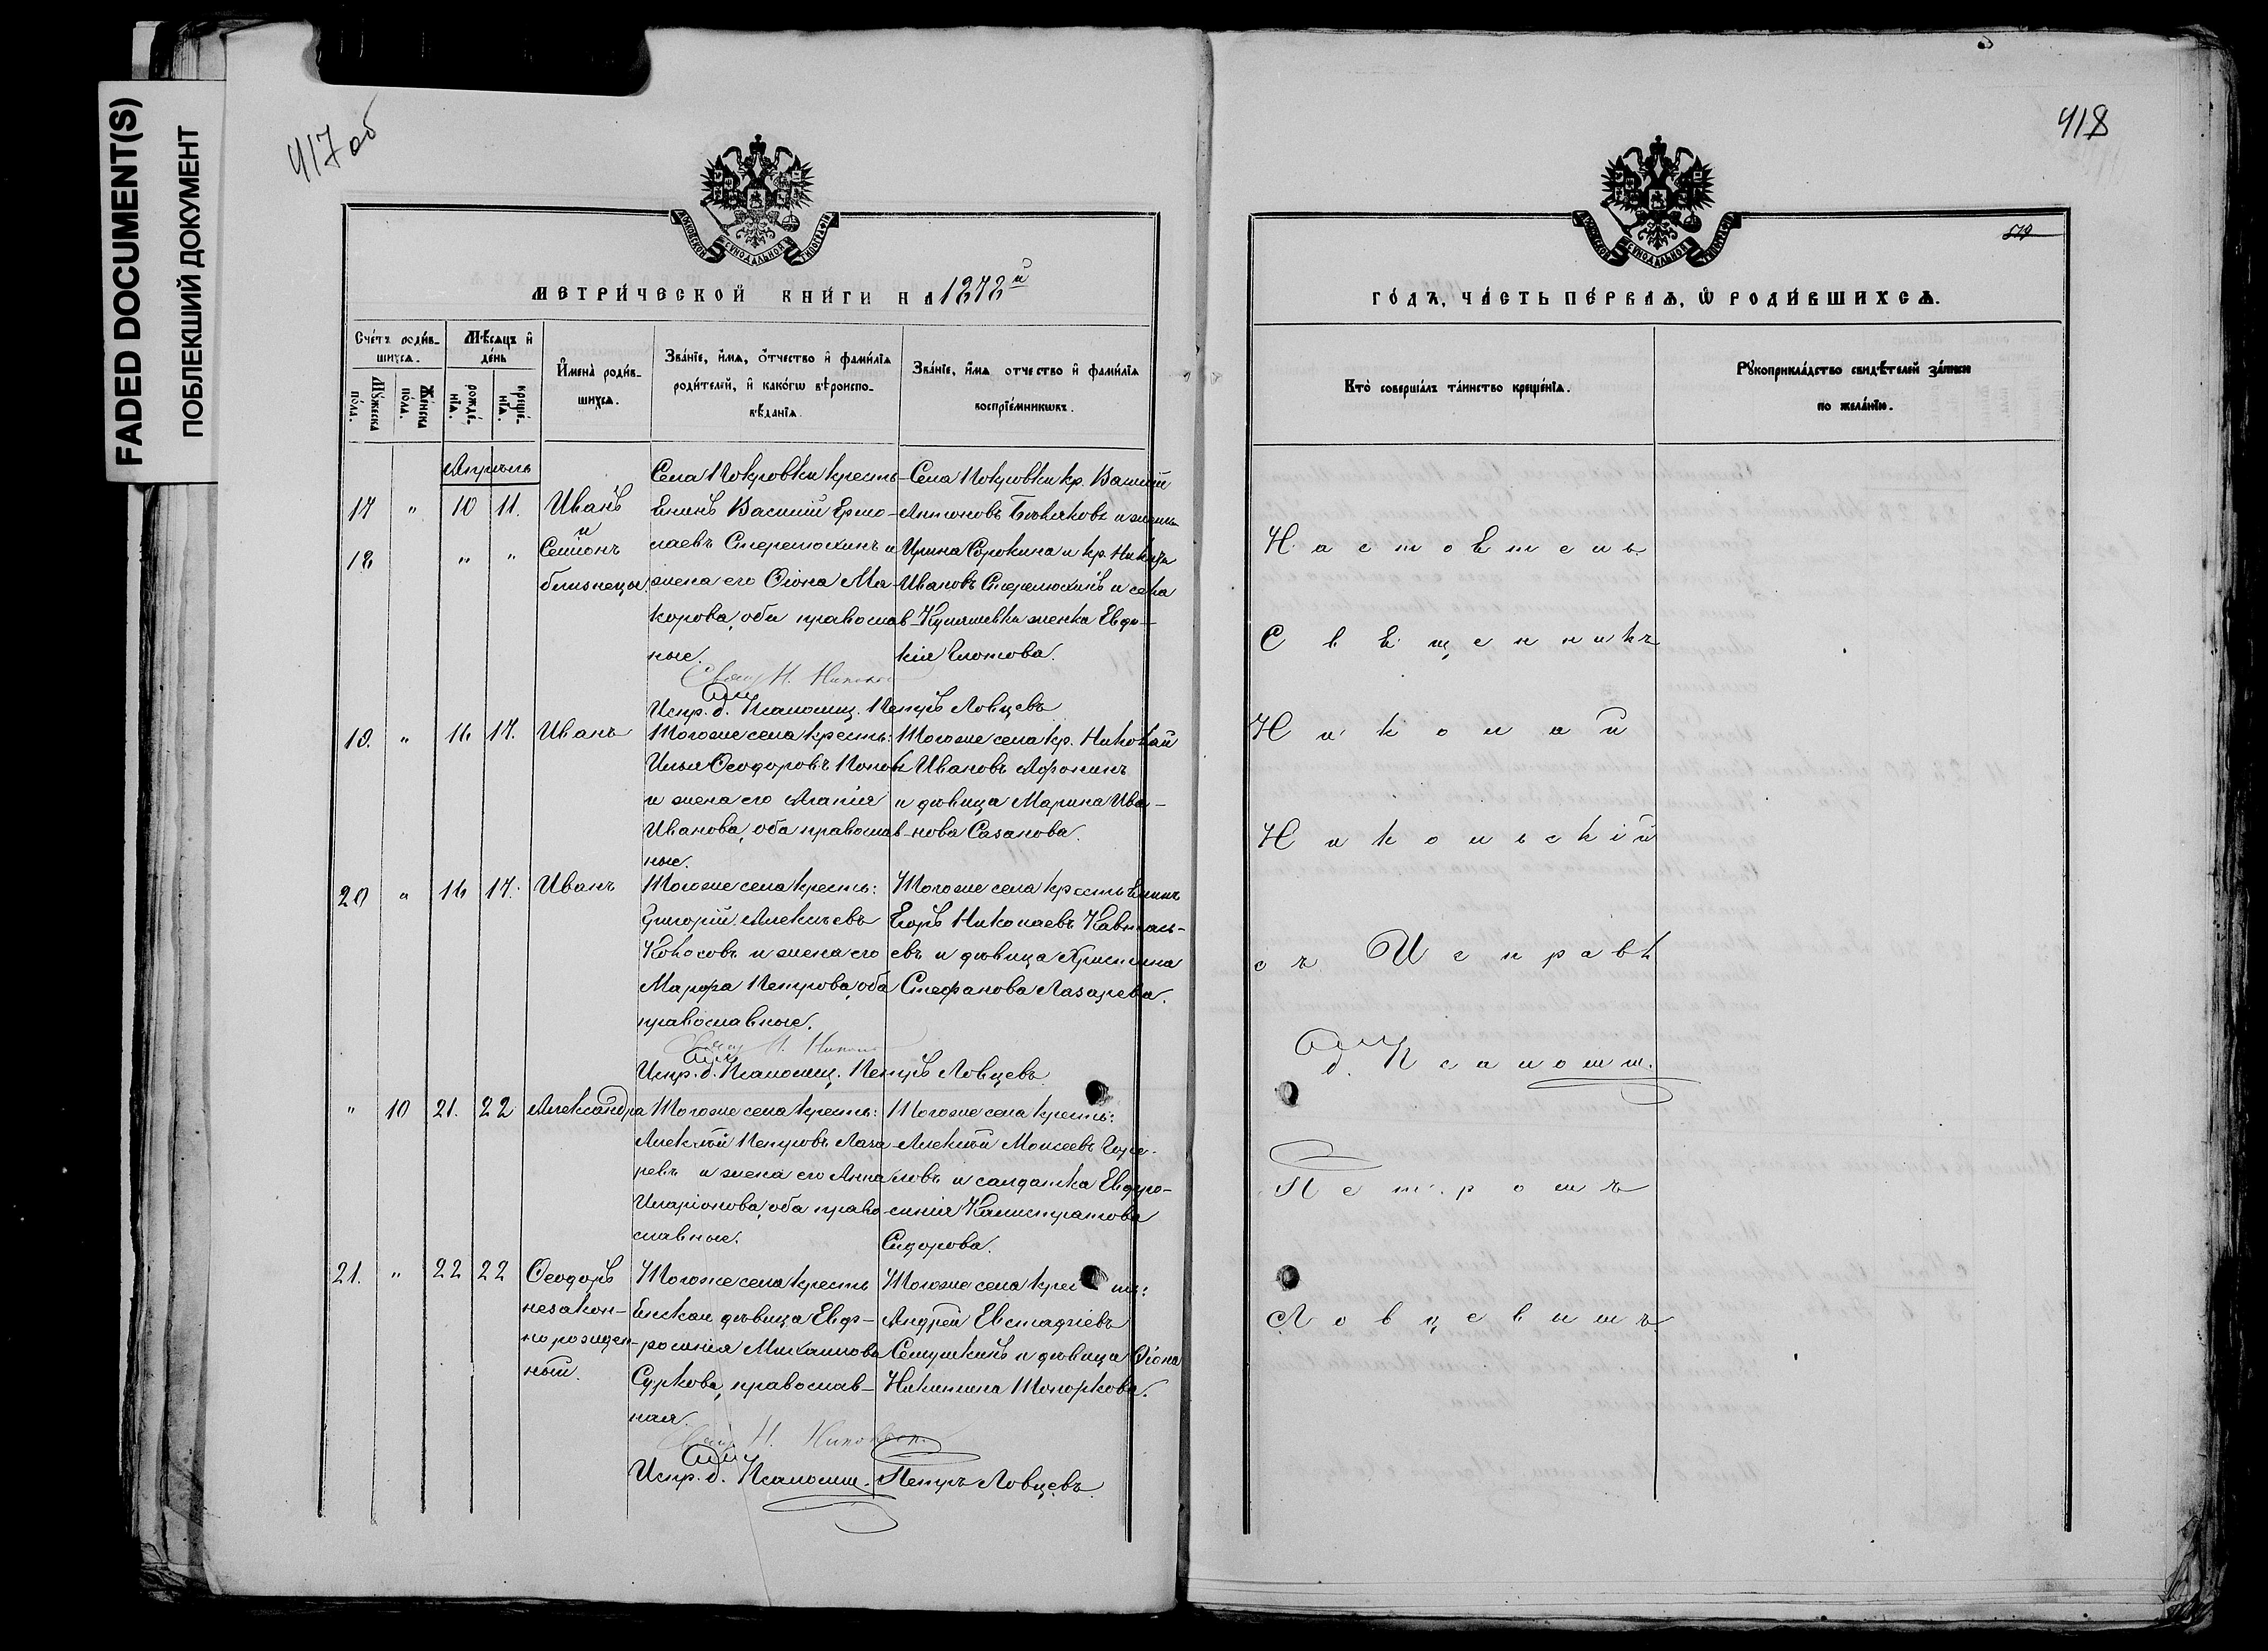 FADED DOCUMENT(S)
ПОБЛЕКШИЙ ДОКУМЕНТ
417 об
МОСКОВСКОЙ СѴНОДАЛЬНОЙ ТИПОГРАФІИ
МЕТРИ́ЧЕСКОЙ КНИ́ГИ НА 1872й
Сче́тъ роди́в-
шихсѧ.
Мѣ́сѧцъ и҆
де́нь
Мꙋ́жеска
по́ла.
Же́нска
по́ла.
рожде́-
нїѧ.
креще́-
нїѧ.
И҆мена̀ роди́в-
шихсѧ.
Зва́нїе, и҆́мѧ, ѻ҆́тчество и҆ фами́лїѧ
роди́телей, и҆ како́гѡ вѣроиспо-
вѣ́данїѧ.
Зва́нїе, и҆́мѧ отчество и҆ фами́лїѧ
воспрїе́мникѡвъ.
Апрѣль
17 " 10 11. Иванъ
и
18 " " Семіонъ
близнецы.
Села Покровки кресть-
янинъ Василій Ермо-
лаевъ Стерелюхинъ и
жена его Ѳіона Ма-
корова, оба православ-
ные.
Села Покровки кр. Василій
Антоновъ и
Ирина Сорокина и кр. Никита
Ивановъ Стерелюхинъ и села
женка Евдо-
кія
Свящ. Н. Никольс
Испр. д. Псаломщ. Петръ Ловцевъ
19. " 16 17. Иванъ
Того же села кресть:
Илья Ѳеодоровъ Поповъ
и жена его Агапія
Иванова, оба православ-
ные.
Того же села кр. Николай
Ивановъ Афонинъ
и дѣвица Марина Ива-
нова Сазанова.
20 " 16 17. Иванъ
Того же села кресть:
Григорій Алексѣевъ
Колосовъ и жена его
Марфа Петрова, оба
православные.
Того же села крестьянинъ
Егоръ Николаевъ
евъ и дѣвица Христина
Стефанова Лазарева.
Свящ. Н. Никол
Испр. д. Псаломщ. Петръ Ловцевъ
" 10 21. 22 Александра
Того же села кресть:
Алексѣй Петровъ Лаза-
ревъ и жена его Анна
Иларіонова, оба право-
славные.
Того же села кресть:
Алексѣй Моисеевъ
и салдатка Евфро-
синія Калистратова
Сидорова.
21. " 22 22 Ѳеодоръ
незакон-
норожден-
ный.
Того же села кресть
янская дѣвица Евф-
росинія Михаилова
Суркова, православ-
ная.
Того же села крест:
Андрей Евстафіевъ
Семушкинъ и дѣвица Ѳіона
Никитина Топоркова.
Свящ. Н. Никольск.
Испр. д. Псаломщ. Петръ Ловцевъ.
418
519
МОСКОВСКОЙ СѴНОДАЛЬНОЙ ТИПОГРАФІИ
ГО́ДЪ, ЧА́СТЬ ПЕ́РВАѦ, Ѡ҆ РОДИ́ВШИХСѦ.
Кто̀ соверша́лъ та́инство креще́нїѧ.
Рꙋкоприкла́дство свидѣ́телей за́писи
по жела́нїю.
Настоятель
Священникъ
Николай
Никольскій
съ Исправл
д. Псаломщ.
Петромъ
Ловцевымъ